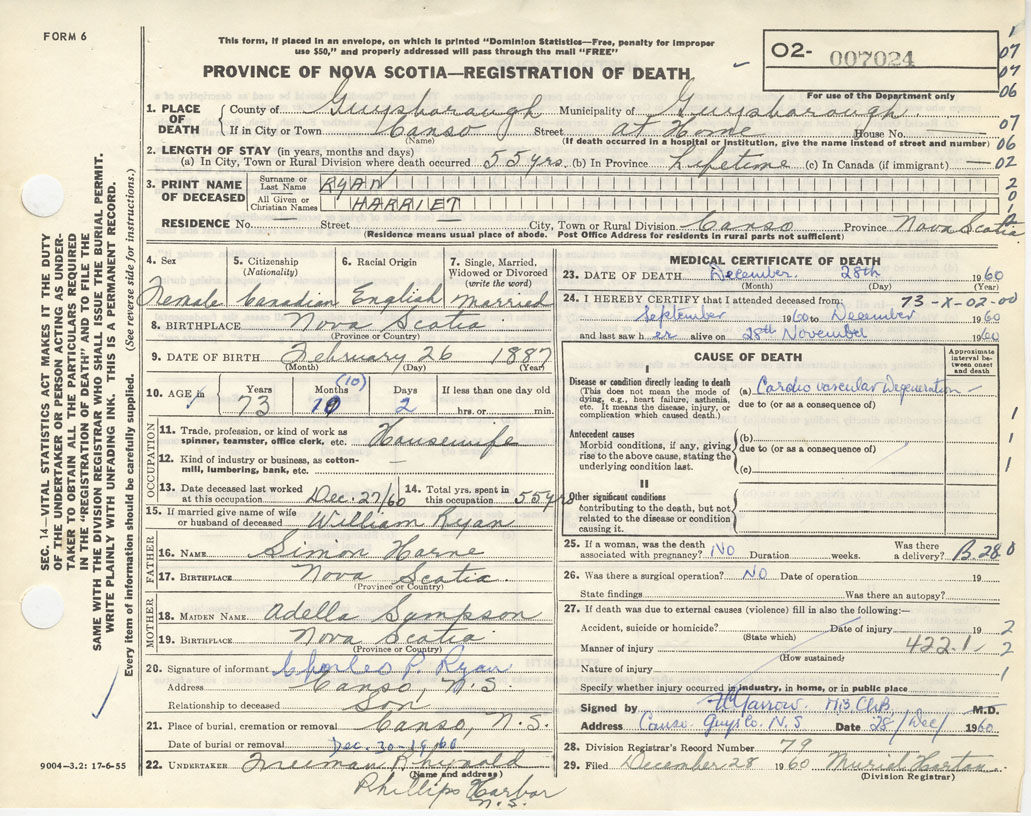 FORM 6
This form, if placed in an envelope, on which is printed "Dominion Statistics—Free, penalty for improper
use $50," and properly addressed will pass through the mail "FREE"
02- 007024
For use of the Department only
PROVINCE OF NOVA SCOTIA—REGISTRATION OF DEATH
1. PLACE OF DEATH County of Guysborough Municipality of Guysborough
If in City or Town Canso Street at Home House No.
(Name) (If death occurred in a hospital or institution, give the name instead of street and number)
2. LENGTH OF STAY (in years, months and days)
(a) In City, Town or Rural Division where death occurred 55 yrs. (b) In Province Lifetime (c) In Canada (if immigrant) —
3. PRINT NAME OF DECEASED Surname or Last Name RYAN
All Given or Christian Names HARRIET
RESIDENCE No. — Street — City, Town or Rural Division Canso Province Nova Scotia
(Residence means usual place of abode. Post Office Address for residents in rural parts not sufficient)
1
07
07
06
07
06
02
2
0
1
SEC. 14—VITAL STATISTICS ACT MAKES IT THE DUTY
OF THE UNDERTAKER OR PERSON ACTING AS UNDER-
TAKER TO OBTAIN ALL THE PARTICULARS REQUIRED
IN THE "REGISTRATION OF DEATH" AND TO FILE THE
SAME WITH THE DIVISION REGISTRAR WHO SHALL ISSUE THE BURIAL PERMIT.
WRITE PLAINLY WITH UNFADING INK. THIS IS A PERMANENT RECORD.
Every item of information should be carefully supplied. (See reverse side for instructions.)
4. Sex 5. Citizenship (Nationality) 6. Racial Origin 7. Single, Married, Widowed or Divorced (write the word)
Female Canadian English Married
8. BIRTHPLACE Nova Scotia
(Province or Country)
9. DATE OF BIRTH February 26 1887
(Month) (Day) (Year)
10. AGE in Years Months (10) Days If less than one day old
73 10 2 hrs. or min.
OCCUPATION
11. Trade, profession or kind of work as
spinner, teamster, office clerk, etc. Housewife
12. Kind of industry or business, as cotton-
mill, lumbering, bank, etc. —
13. Date deceased last worked at this occupation Dec. 27/60 14. Total yrs. spent in this occupation 55 yrs
15. If married give name of wife
or husband of deceased William Ryan
FATHER
16. NAME Simon Horne
17. BIRTHPLACE Nova Scotia
(Province or Country)
MOTHER
18. MAIDEN NAME Adella Sampson
19. BIRTHPLACE Nova Scotia
(Province or Country)
20. Signature of informant Charles P. Ryan
Address Canso, N.S.
Relationship to deceased Son
21. Place of burial, cremation or removal Canso, N.S.
Date of burial or removal Dec. 30-1960
22. UNDERTAKER Freeman Rhynold
(Name and address)
Phillips Harbor
N.S.
9004—3.2: 17-6-55
MEDICAL CERTIFICATE OF DEATH
23. DATE OF DEATH December 28th 1960
(Month) (Day) (Year)
24. I HEREBY CERTIFY that I attended deceased from: 73-X-02-00
September 1960 to December 1960
and last saw her alive on 28th November 1960
CAUSE OF DEATH
Approximate interval between onset and death
I
Disease or condition directly leading to death
(This does not mean the mode of dying, e.g., heart failure, asthenia, etc. It means the disease, injury, or complication which caused death.)
(a) Cardio vascular Degeneration
due to (or as a consequence of)
Antecedent causes
Morbid conditions, if any, giving rise to the above cause, stating the underlying condition last.
(b)
due to (or as a consequence of)
(c)
II
Other significant conditions
contributing to the death, but not related to the disease or condition causing it.
1
1
1
25. If a woman, was the death
associated with pregnancy? NO Duration weeks. Was there a delivery? B. 28 0
26. Was there a surgical operation? NO Date of operation 19
State findings Was there an autopsy?
27. If death was due to external causes (violence) fill in also the following:—
Accident, suicide or homicide? Date of injury 19 2
(State which)
Manner of injury 422.1 2
(How sustained)
Nature of injury 1
Specify whether injury occurred in industry, in home, or in public place
Signed by M.B. Ch.B. M.D.
Address Canso. Guys Co. N.S Date 28/Dec/ 1960
28. Division Registrar's Record Number 79
29. Filed December 28 1960 Muriel
(Division Registrar)